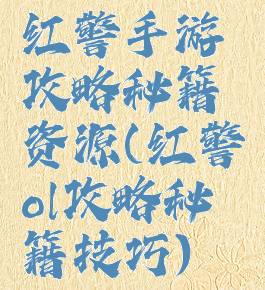 红警手游
攻略秘籍
资源(红警
ol攻略秘
籍技巧)